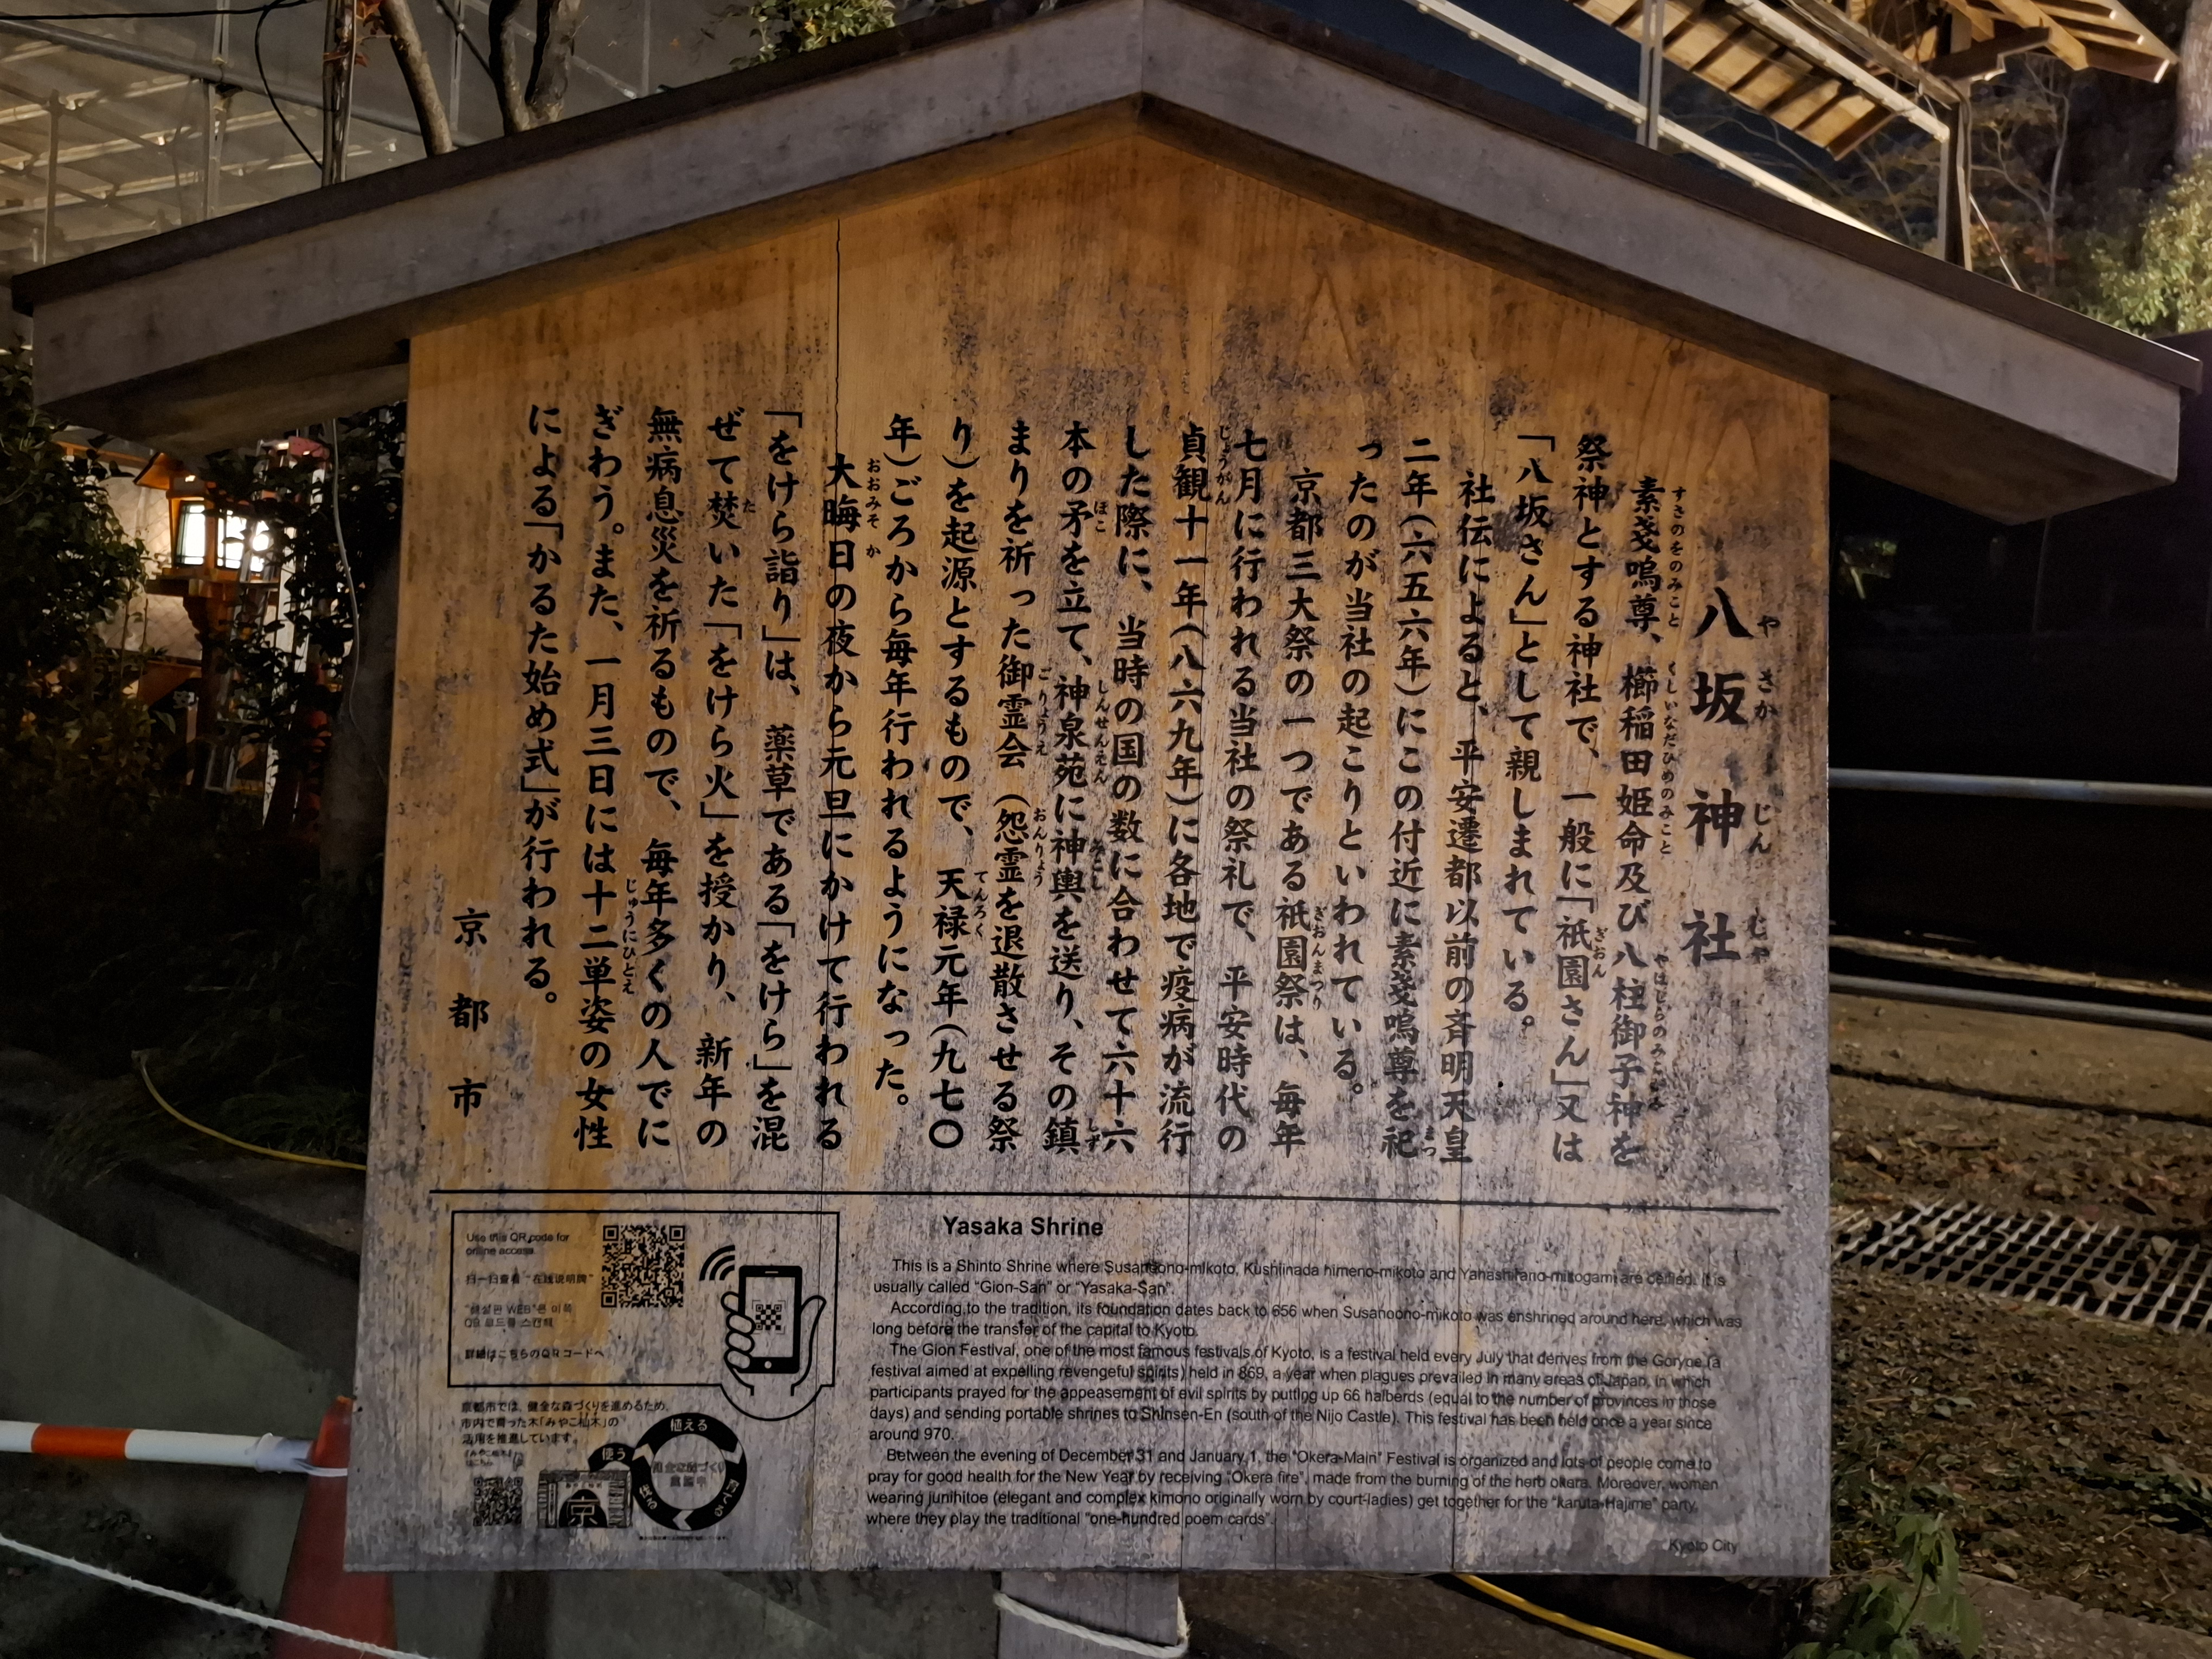 八坂神社
やさかじんじゃ
素戔嗚尊、櫛稲田姫命及び八柱御子神を
すさのをのみこと くしいなだひめのみこと やはしらのみこがみ
祭神とする神社で、一般に「祇園さん」又は
ぎおん
「八坂さん」として親しまれている。
社伝によると、平安遷都以前の斉明天皇
二年(六五六年)にこの付近に素戔嗚尊を祀
まつ
ったのが当社の起こりといわれている。
京都三大祭の一つである祇園祭は、毎年
ぎおんまつり
七月に行われる当社の祭礼で、平安時代の
貞観十一年(八六九年)に各地で疫病が流行
じょうがん
した際に、当時の国の数に合わせて六十六
本の矛を立て、神泉苑に神輿を送り、その鎮
ほこ しんせんえん みこし しず
まりを祈った御霊会(怨霊を退散させる祭
ごりょうえ おんりょう
り)を起源とするもので、天禄元年(九七〇
てんろく
年)ごろから毎年行われるようになった。
大晦日の夜から元旦にかけて行われる
おおみそか
「をけら詣り」は、薬草である「をけら」を混
ぜて焚いた「をけら火」を授かり、新年の
た
無病息災を祈るもので、毎年多くの人でに
ぎわう。また、一月三日には十二単姿の女性
じゅうにひとえ
による「かるた始め式」が行われる。
京都市
Use this QR code for
online access
扫一扫查看"在线说明牌"
"해설판 WEB"은 이쪽
QR 코드를 스캔해
詳細はこちらのQRコードへ
京都市では、健全な森づくりを進めるため、
市内で育った木「みやこ杣木」の
活用を推進しています。
植える
使う
京
Yasaka Shrine
This is a Shinto Shrine where Susanoono-mikoto, Kushiinada himeno-mikoto and Yahashirano-mikogami are deified. It is
usually called "Gion-San" or "Yasaka-San".
According to the tradition, its foundation dates back to 656 when Susanoono-mikoto was enshrined around here, which was
long before the transfer of the capital to Kyoto.
The Gion Festival, one of the most famous festivals of Kyoto, is a festival held every July that derives from the Goryoe (a
festival aimed at expelling revengeful spirits) held in 869, a year when plagues prevailed in many areas of Japan, in which
participants prayed for the appeasement of evil spirits by putting up 66 halberds (equal to the number of provinces in those
days) and sending portable shrines to Shinsen-En (south of the Nijo Castle). This festival has been held once a year since
around 970.
Between the evening of December 31 and January 1, the "Okera-Main" Festival is organized and lots of people come to
pray for good health for the New Year by receiving "Okera fire", made from the burning of the herb okera. Moreover, women
wearing junihitoe (elegant and complex kimono originally worn by court-ladies) get together for the "karuta-Hajime" party,
where they play the traditional "one-hundred poem cards".
Kyoto City